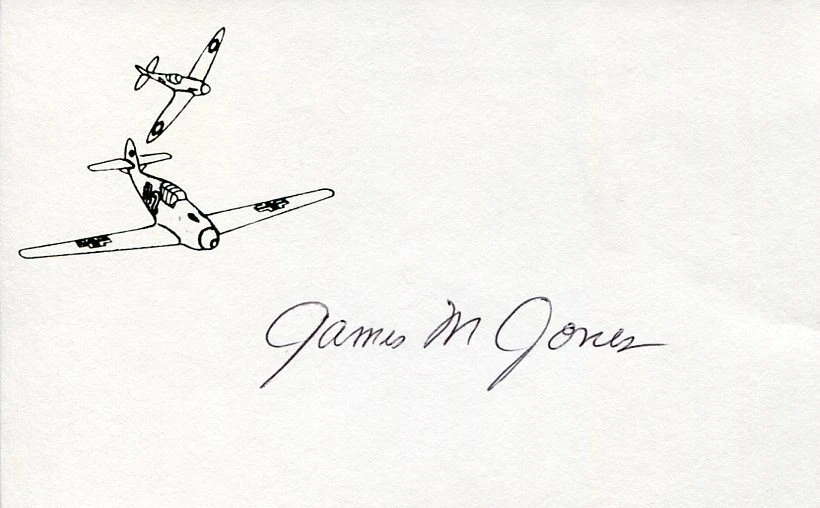 James M Jones